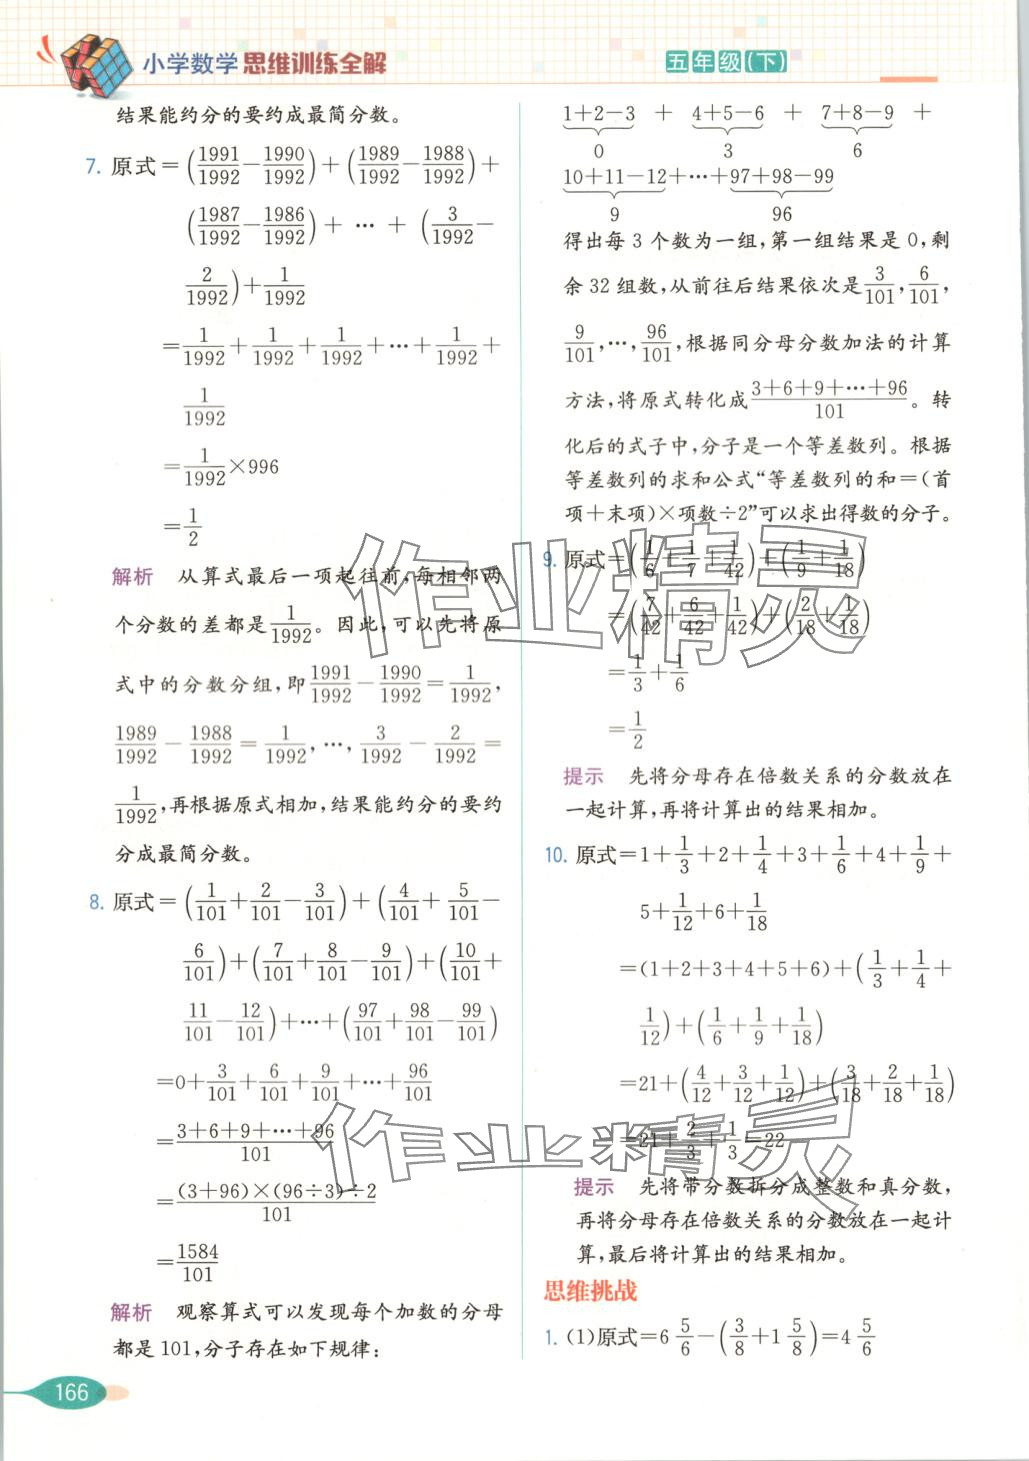 小学数学 思维训练全解
五年级(下)
结果能约分的要约成最简分数。
7. 原式=(1991/1992-1990/1992)+(1989/1992-1988/1992)+
(1987/1992-1986/1992)+ ··· +(3/1992-
2/1992)+1/1992
=1/1992+1/1992+1/1992+···+1/1992+
1/1992
=1/1992×996
=1/2
解析 从算式最后一项起往前,每相邻两
个分数的差都是1/1992。因此,可以先将原
式中的分数分组,即1991/1992-1990/1992=1/1992,
1989/1992-1988/1992=1/1992,···,3/1992-2/1992=
1/1992,再根据原式相加,结果能约分的要约
分成最简分数。
8. 原式=(1/101+2/101-3/101)+(4/101+5/101-
6/101)+(7/101+8/101-9/101)+(10/101+
11/101-12/101)+···+(97/101+98/101-99/101)
=0+3/101+6/101+9/101+···+96/101
=(3+6+9+···+96)/101
=(3+96)×(96÷3)÷2/101
=1584/101
解析 观察算式可以发现每个加数的分母
都是101,分子存在如下规律:
166
1+2-3 + 4+5-6 + 7+8-9 +
0 3 6
10+11-12+···+97+98-99
9 96
得出每3个数为一组,第一组结果是0,剩
余32组数,从前往后结果依次是3/101,6/101,
9/101,···,96/101,根据同分母分数加法的计算
方法,将原式转化成(3+6+9+···+96)/101。转
化后的式子中,分子是一个等差数列。根据
等差数列的求和公式“等差数列的和=(首
项+末项)×项数÷2”可以求出得数的分子。
9. 原式=(1/6+1/7+1/42)+(1/9+1/18)
=(7/42+6/42+1/42)+(2/18+1/18)
=1/3+1/6
=1/2
提示 先将分母存在倍数关系的分数放在
一起计算,再将计算出的结果相加。
10. 原式=1+1/3+2+1/4+3+1/6+4+1/9+
5+1/12+6+1/18
=(1+2+3+4+5+6)+(1/3+1/4+
1/12)+(1/6+1/9+1/18)
=21+(4/12+3/12+1/12)+(3/18+2/18+1/18)
=21+2/3+1/3=22
提示 先将带分数拆分成整数和真分数,
再将分母存在倍数关系的分数放在一起计
算,最后将计算出的结果相加。
思维挑战
1. (1)原式=6 5/6-(3/8+1 5/8)=4 5/6
作业精灵
作业精灵